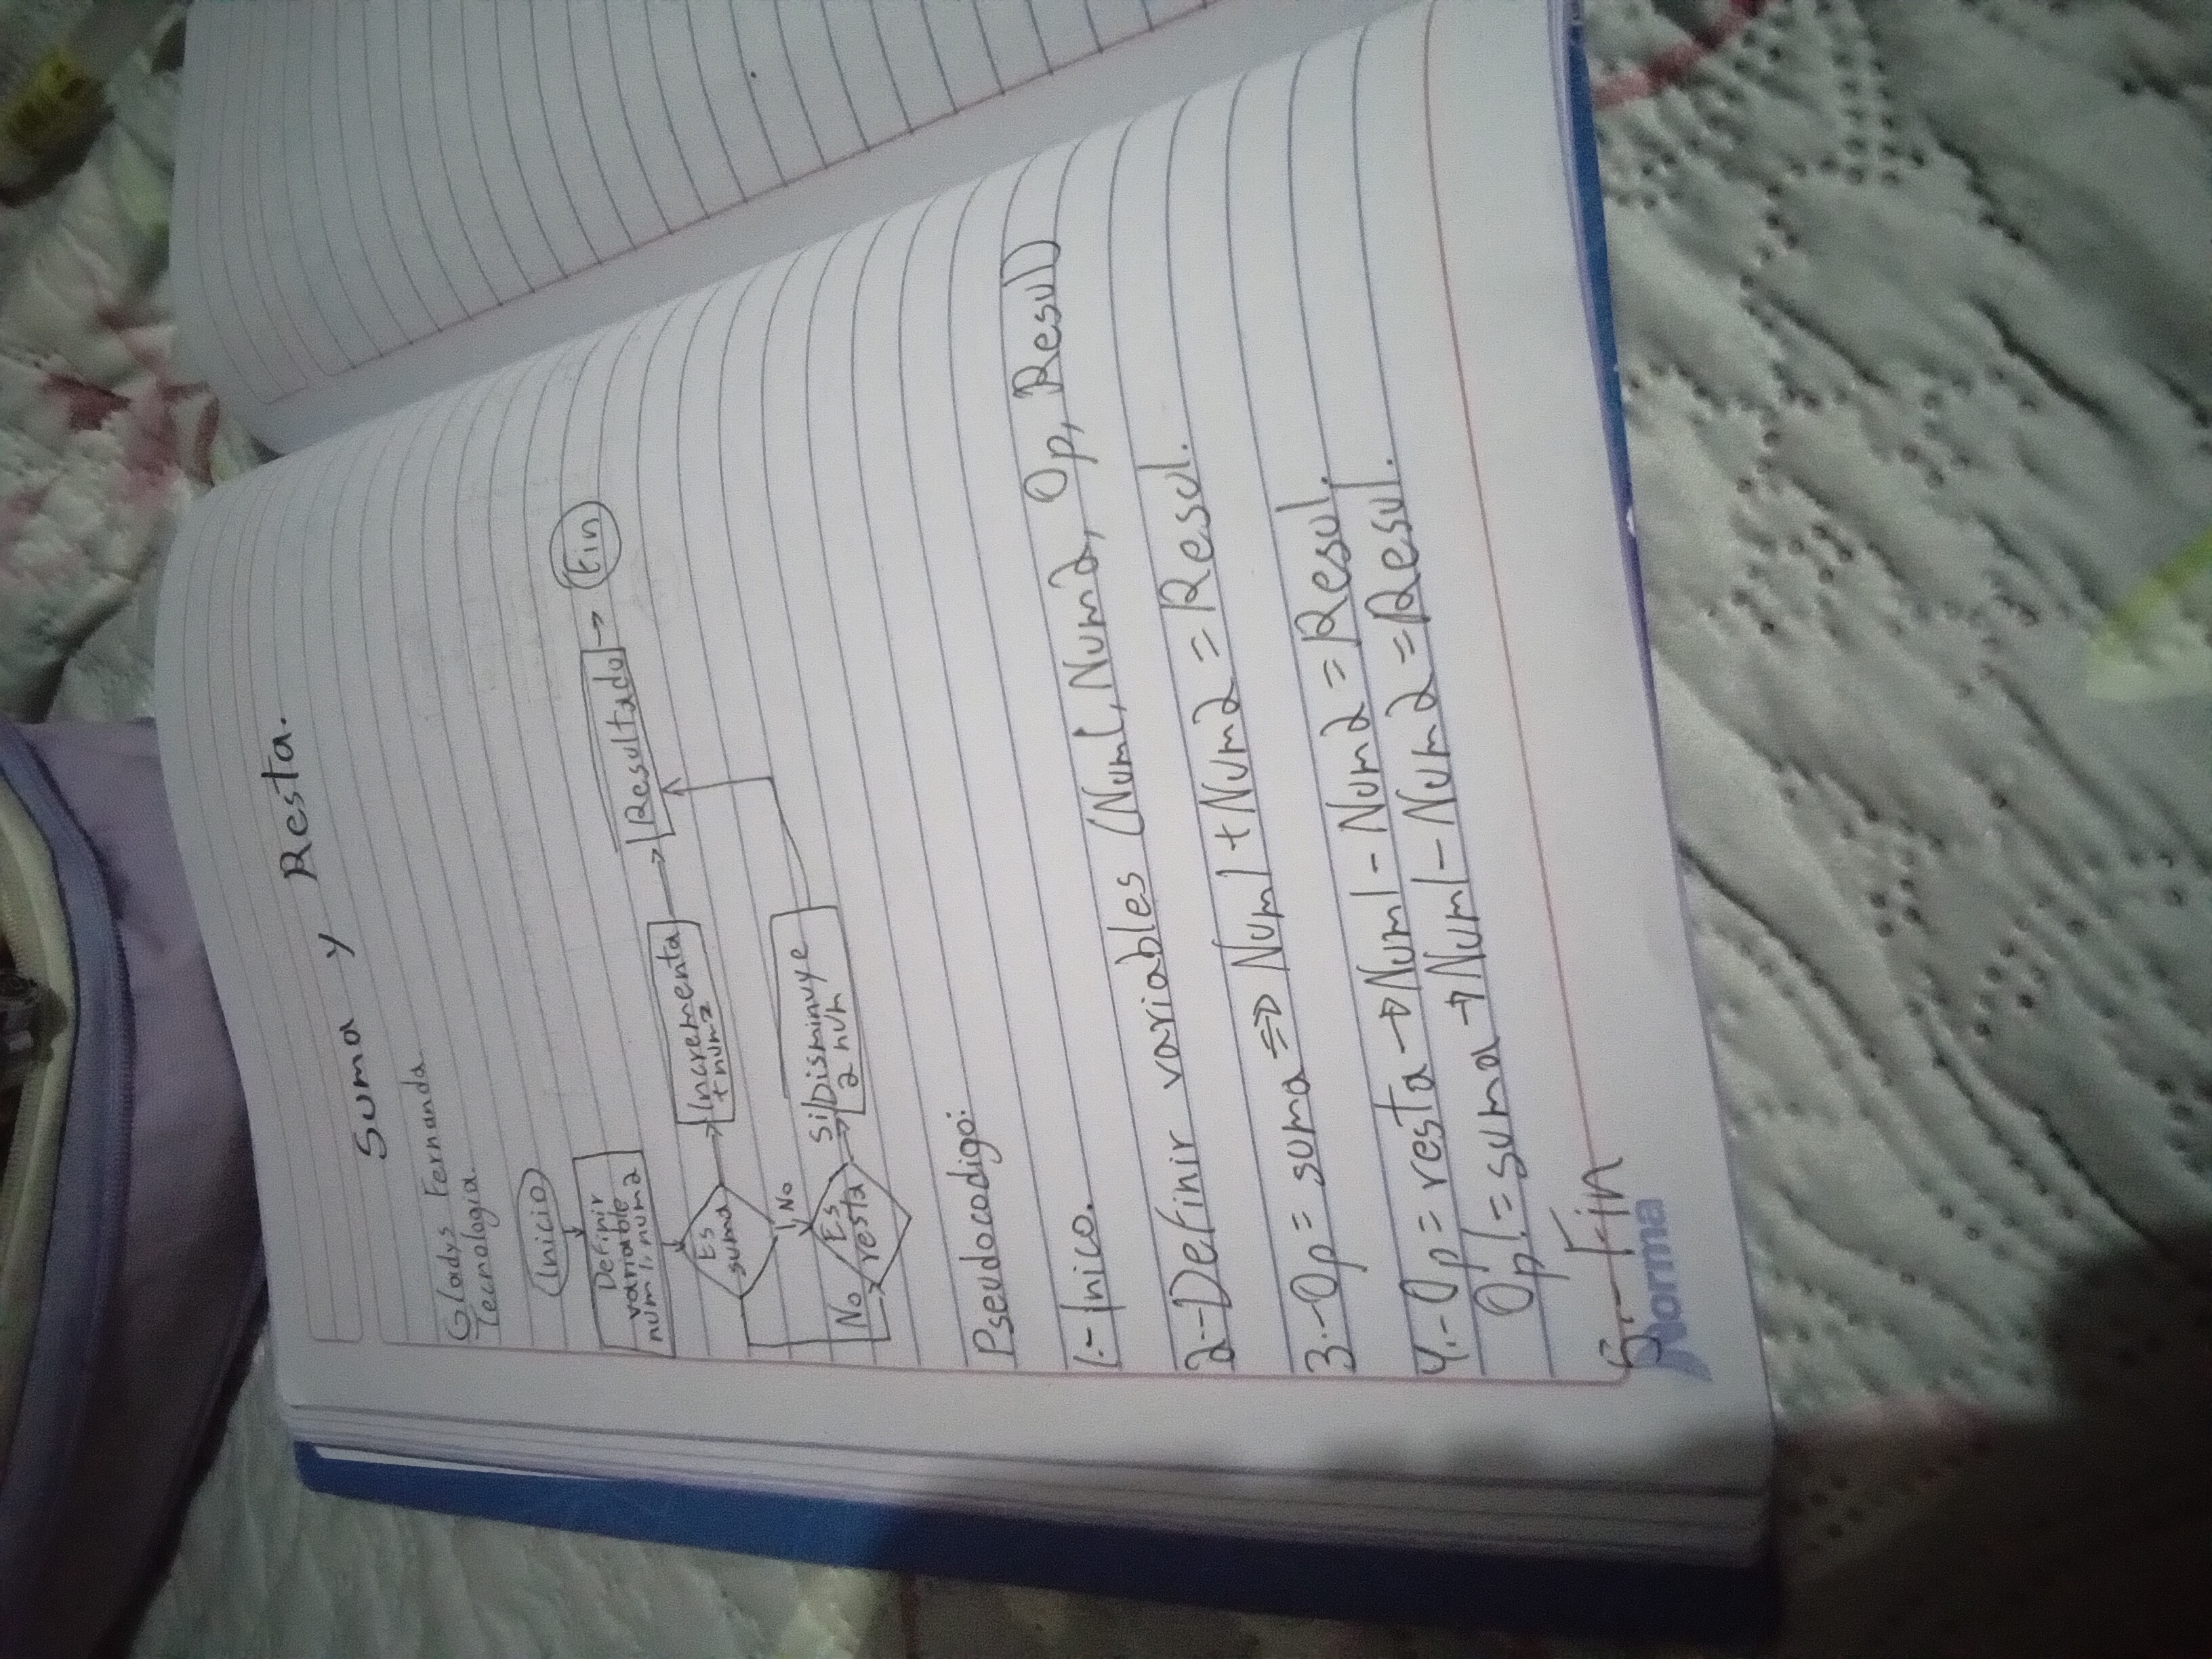 Suma y Resta.
Gladys Fernanda
Tecnologia.
Inicio
Definir
variable
num 1, num 2
Es
suma
Incrementa
+ num 2
Resultado
Fin
No
No
Es
resta
Si
Disminuye
2 num
Pseudocodigo:
1.- Inico.
2.- Definir variables (Num1, Num2, Op, Resul)
3.- Op = suma => Num1 + Num2 = Resul.
4.- Op = resta → Num1 - Num2 = Resul.
Op != suma → Num1 - Num2 = Resul.
5.- Fin
Norma